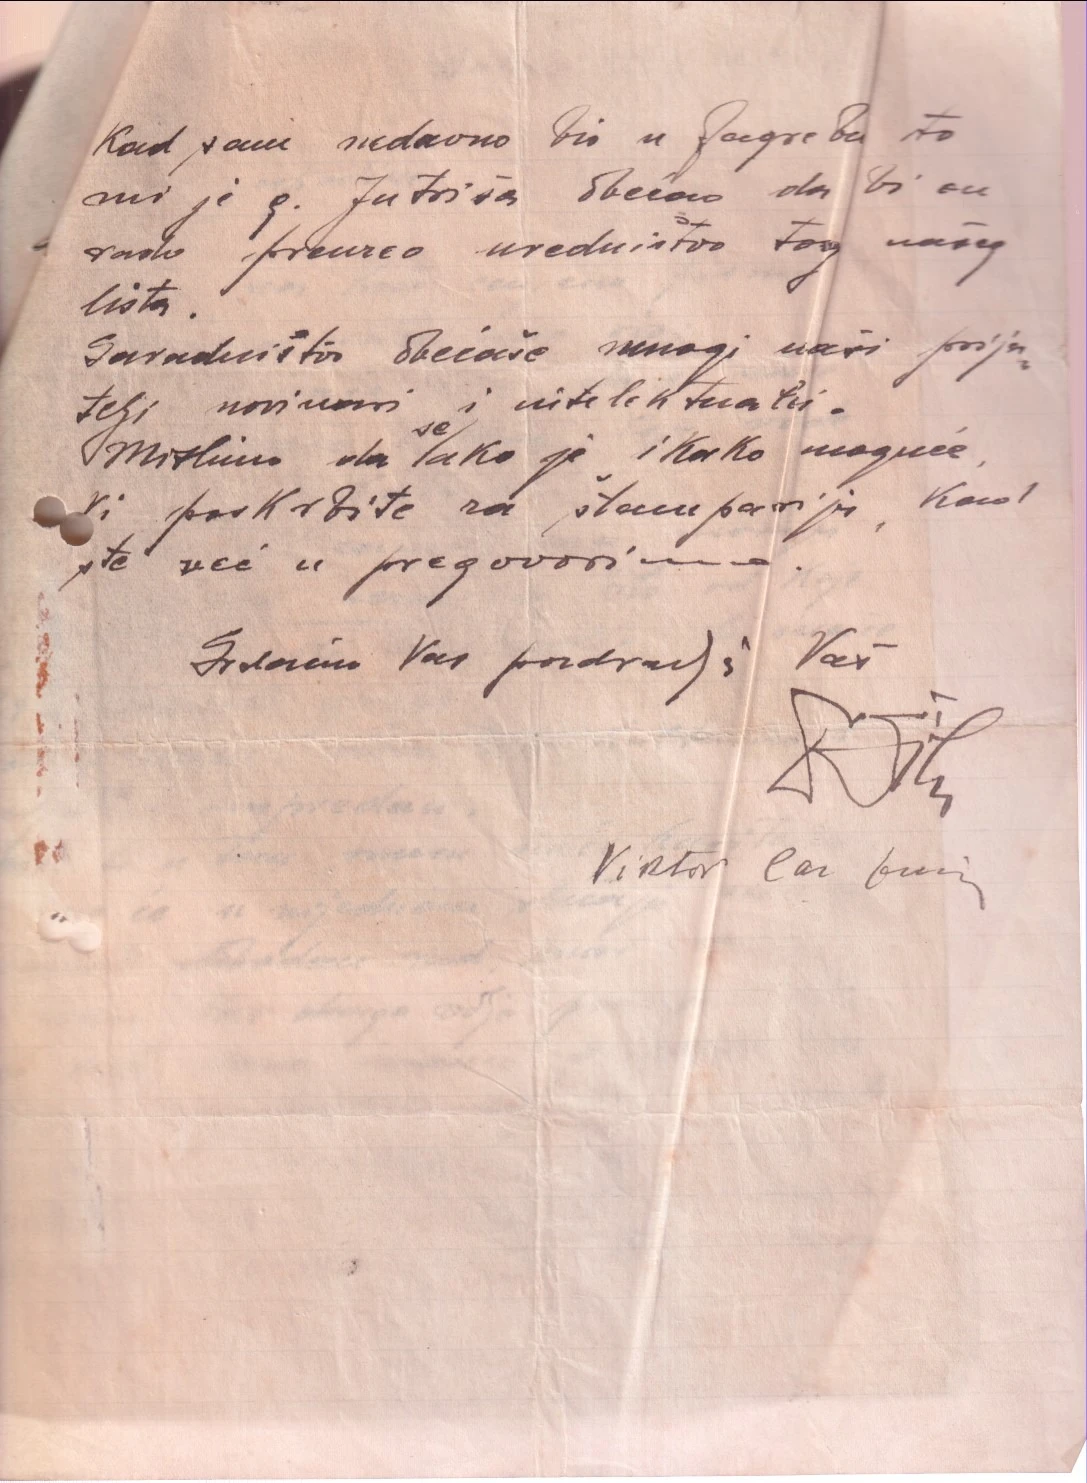 Kad sam nedavno bio u Zagrebu to
mi je g. Jutriša obećao da bi on
rado preuzeo uredništvo tog našeg
lista.
Saradništvo obećaše mnogi naši prija-
telji novinari i intelektualci.
Mislimo da se ako je ikako moguće,
Vi poskrbite za štampariju, kad
ste već u pregovorima.
Srdačno Vas pozdravlja Vaš
Viktor Car Emin